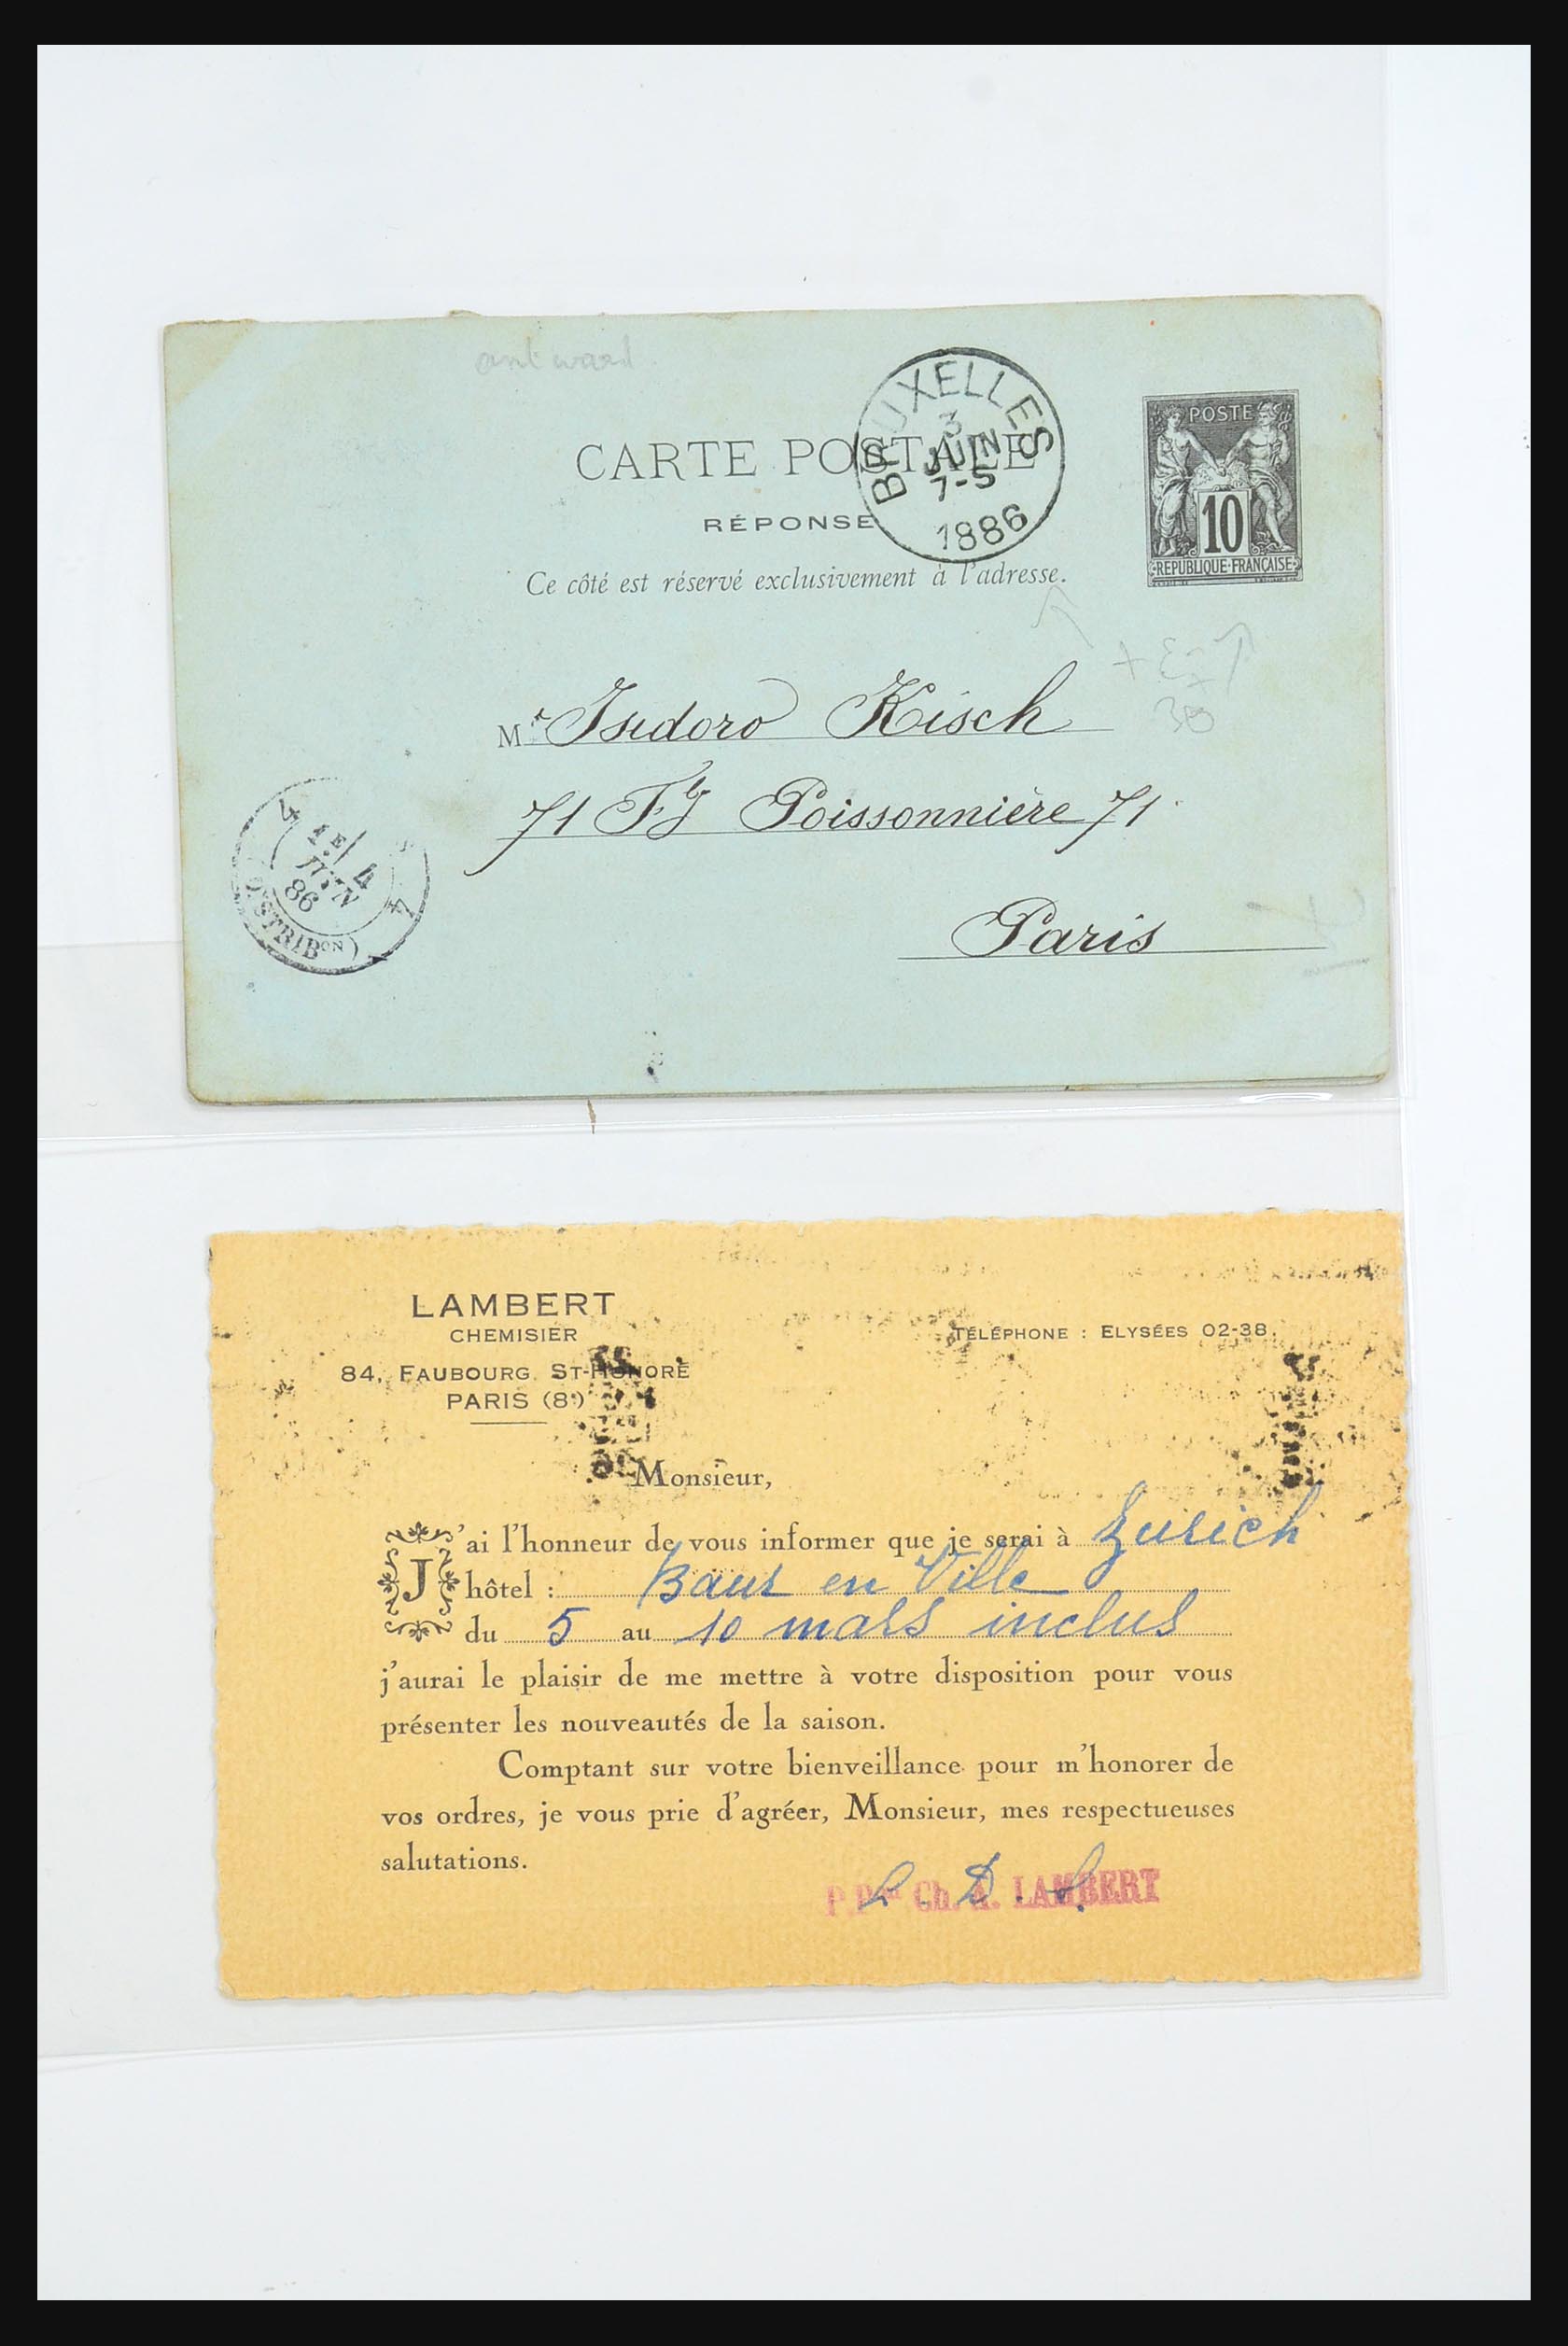 antword
CARTE POSTALE
BRUXELLES
3
JUIN
7-5
1886
POSTE
10
REPUBLIQUE FRANÇAISE
RÉPONSE
Ce côté est réservé exclusivement à l'adresse.
38
Mr Isidoro Kisch
71 Fg Poissonnière 71
Paris
4
1E/ 4
JUIN
86
4
DISTRIBON)
LAMBERT
CHEMISIER
84, FAUBOURG ST-HONORÉ
PARIS (8e)
TÉLÉPHONE : ELYSÉES 02-38
Monsieur,
J'ai l'honneur de vous informer que je serai à Zurich
hôtel : Baur en Ville
du 5 au 10 mars inclus
j'aurai le plaisir de me mettre à votre disposition pour vous
présenter les nouveautés de la saison.
Comptant sur votre bienveillance pour m'honorer de
vos ordres, je vous prie d'agréer, Monsieur, mes respectueuses
salutations.
Ch. A. LAMBERT